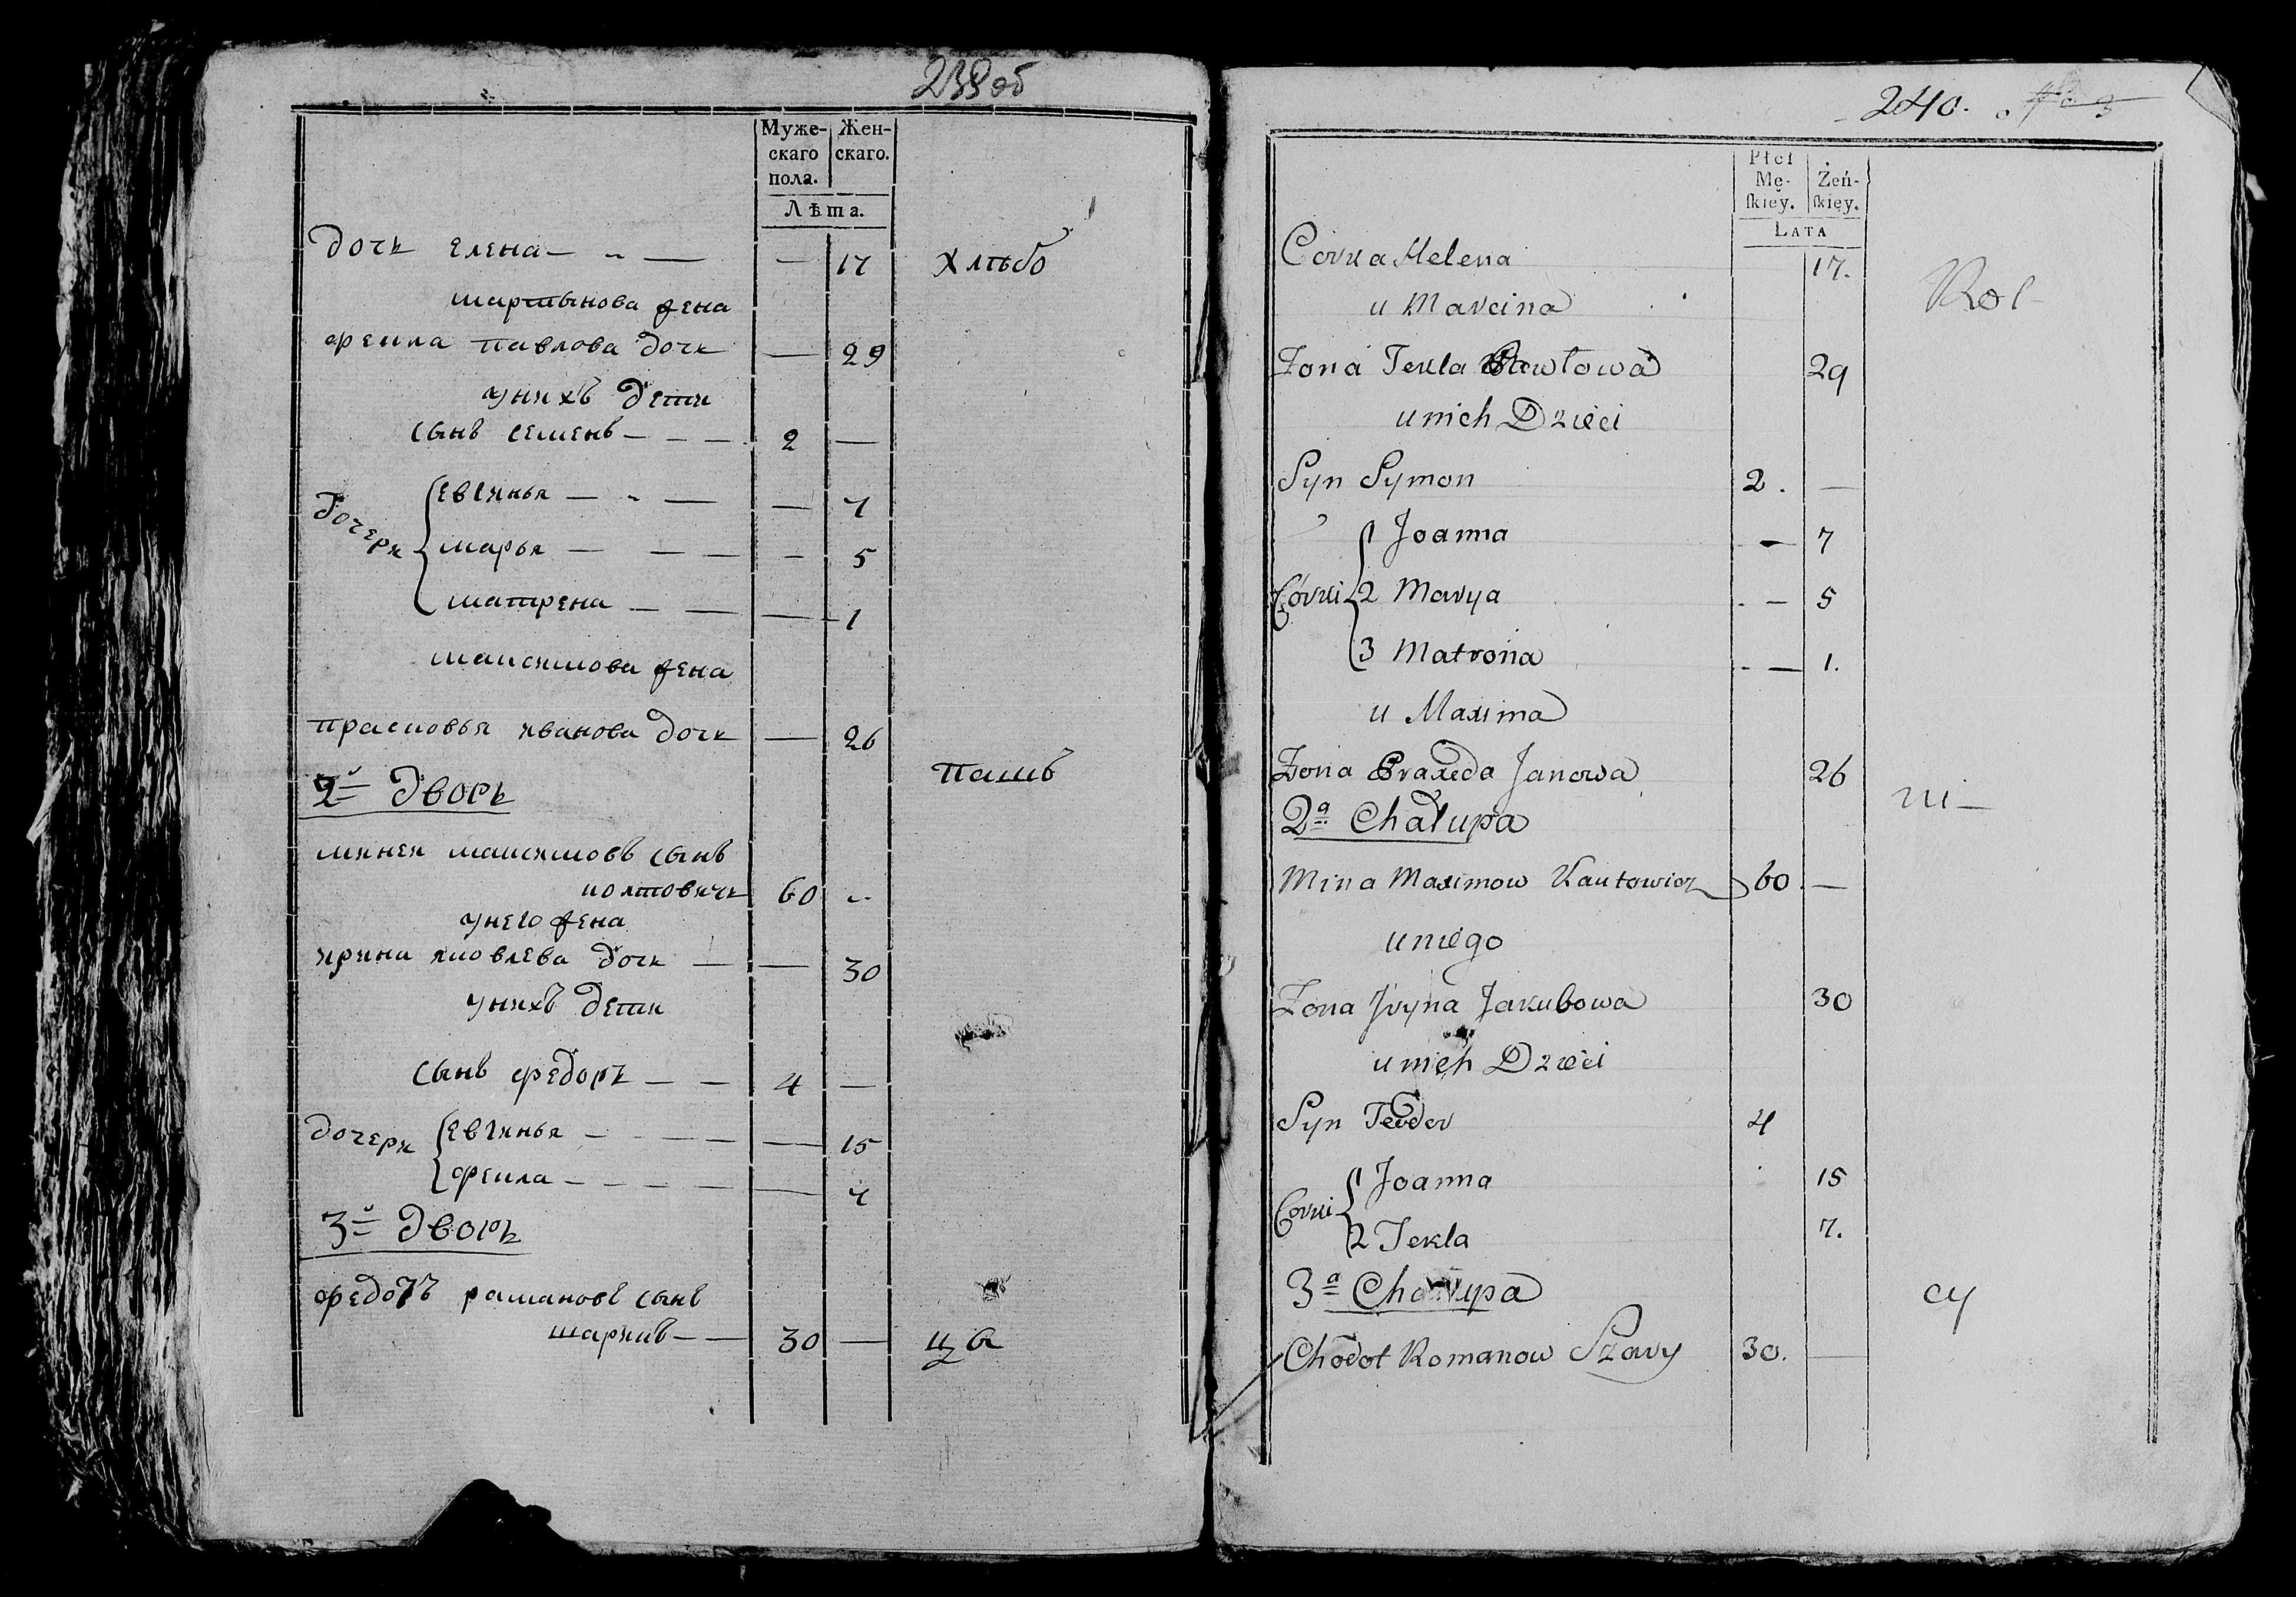 239об
Муже- Жен-
скаго скаго.
пола.
Лѣта.
дочь елена — 17 хлѣбо
мартынова жена
фекла павлова дочь — 29
у нихъ дети
сынъ семенъ — 2 —
дочери
евгинья — 7
марья — 5
матрена — 1
максимова жена
прасковья иванова дочь — 26
пашъ
2й дворъ
миней максимовъ сынъ
колтовичь 60
у него жена
ирина яковлева дочь — 30
у нихъ дети
сынъ федоръ — 4 —
дочери
евгинья — 15
фекла — 7
3й дворъ
федотъ рамановъ сынъ
шарий — 30 — цы
240.
Płci
Mę- Żeń-
ſkiey. ſkięy.
LATA
Corka Helena 17. Rol-
u Marcina
Zona Tekla Pawłowa 29
u nich Dzieci
Syn Symon 2. —
Córki
Joanna — 7
2 Marya — 5
3 Matrona — 1.
u Maxima
Zona Praxeda Janowa 26
ni-
2a Chałupa
Mina Maximow Kautowicz 60 —
u niego
Zona Jryna Jakubowa 30
u nich Dzieci
Syn Teodor 4
Corki
Joanna 15
2 Tekla 7.
3a Chałupa
cy
Chodot Romanow Szary 30. —